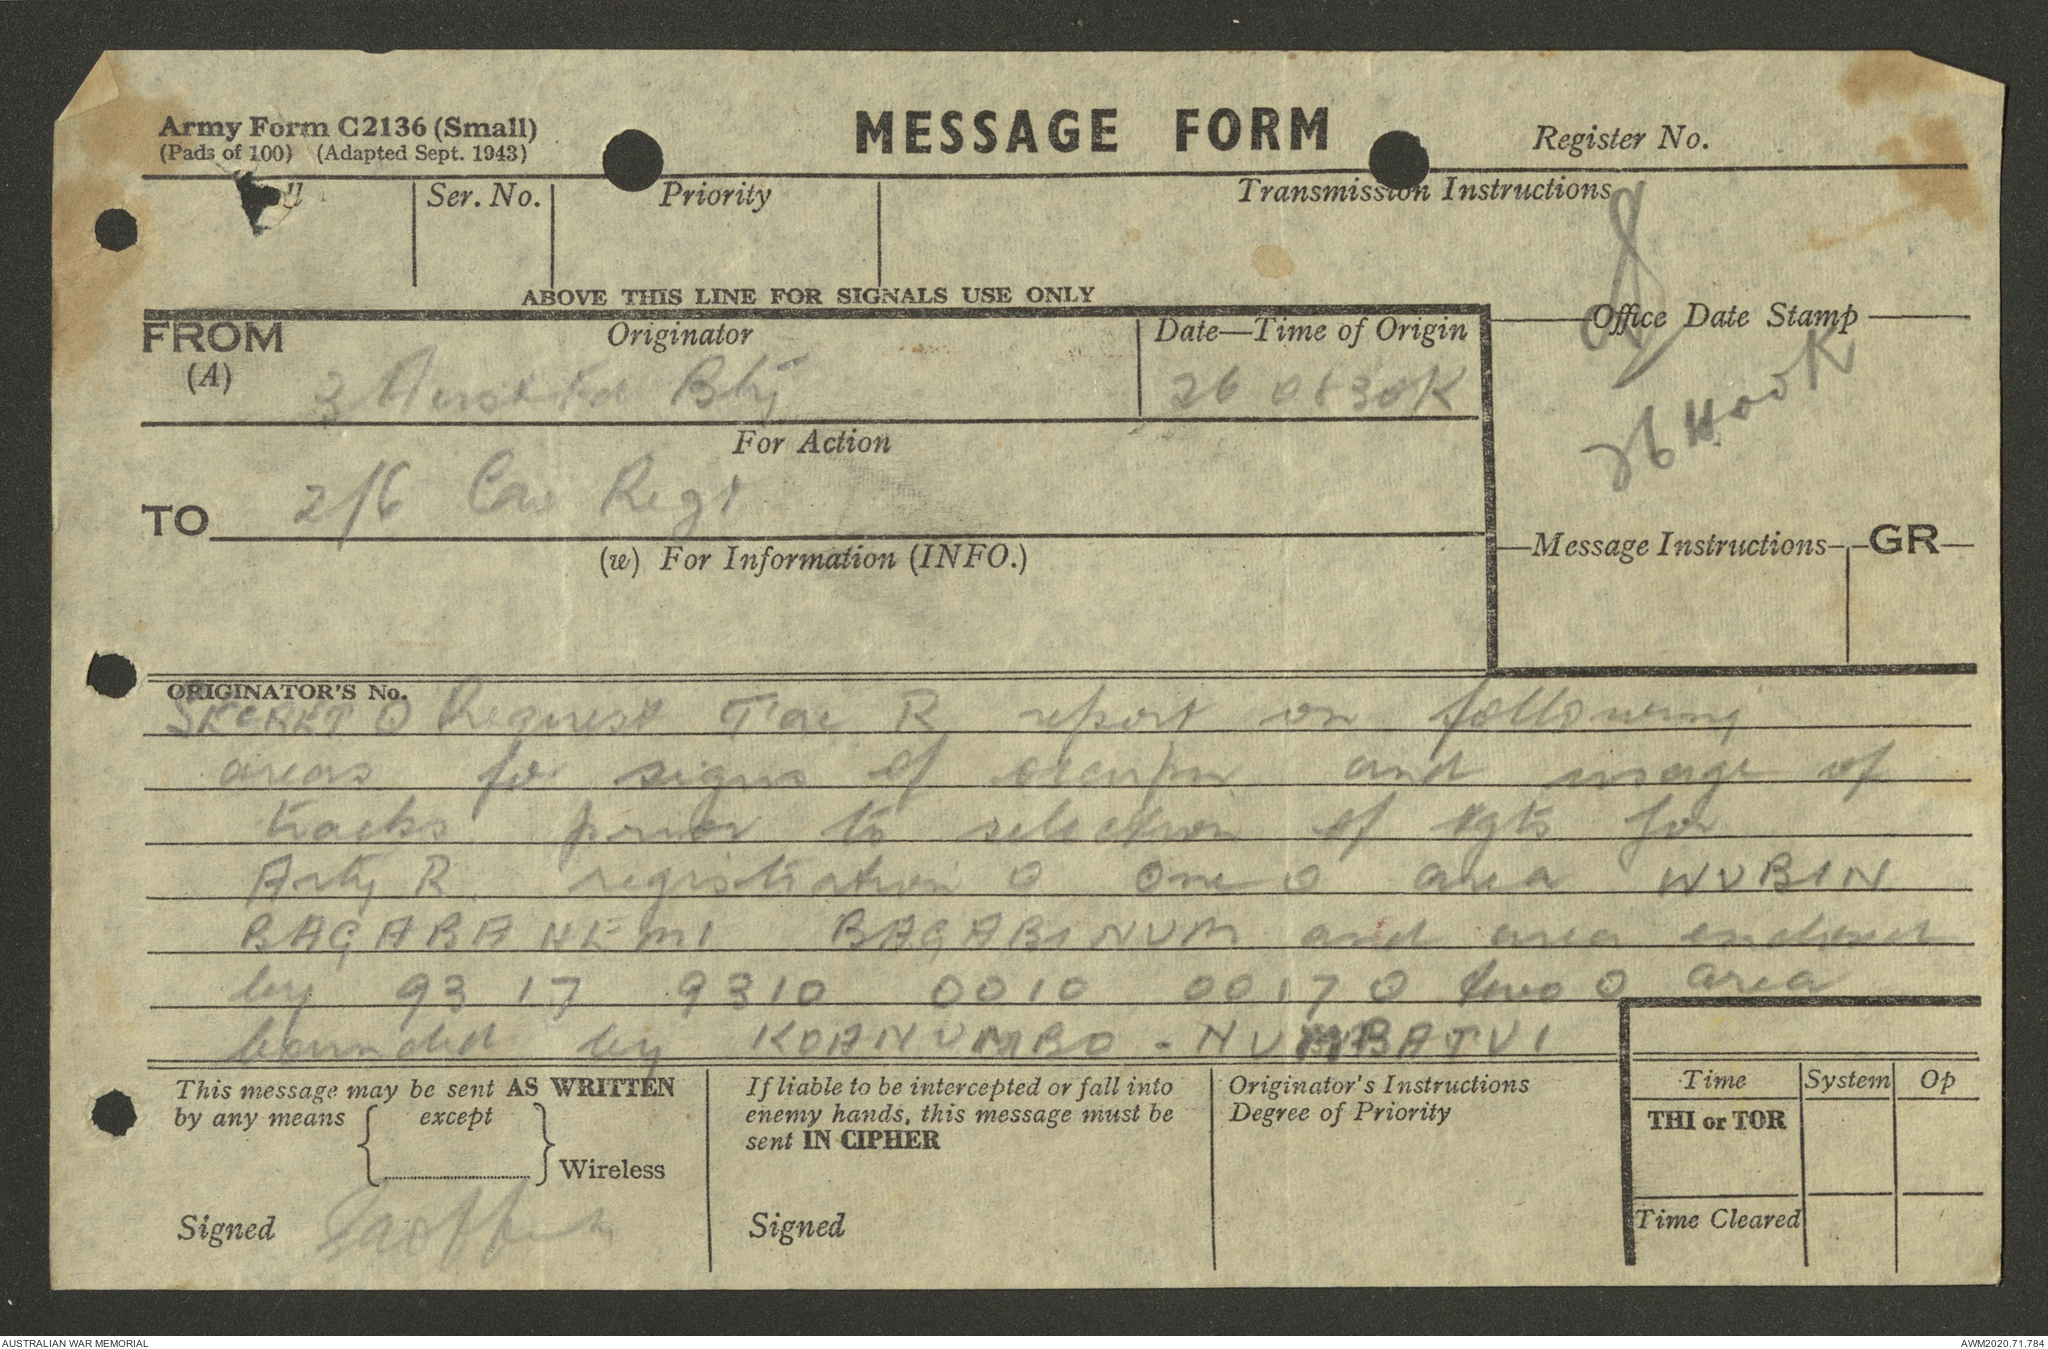 Army Form C2136 (Small)
(Pads of 100) (Adapted Sept. 1943)
MESSAGE FORM
Register No.
Ser. No.
Priority
Transmission Instructions
ABOVE THIS LINE FOR SIGNALS USE ONLY
FROM
(A)
Originator
3 Aust Fd Bty
Date—Time of Origin
26 0830K
Office Date Stamp
For Action
TO
2/6 Cav Regt
(w) For Information (INFO.)
Message Instructions
GR
ORIGINATOR'S No.
SECRET O Request Tac R report on following
areas for signs of and usage of
tracks prior to selection of tgts for
Arty R. registration O One O area WUBIN
BAGABAHEMI BAGABINUM and area enclosed
by 9317 9310 0010 0017 O two O area
bounded by KOANUMBO - NUMBATUI
This message may be sent AS WRITTEN
by any means except
Wireless
Signed
If liable to be intercepted or fall into
enemy hands, this message must be
sent IN CIPHER
Signed
Originator's Instructions
Degree of Priority
Time System Op
THI or TOR
Time Cleared
AUSTRALIAN WAR MEMORIAL
AWM2020.71.784